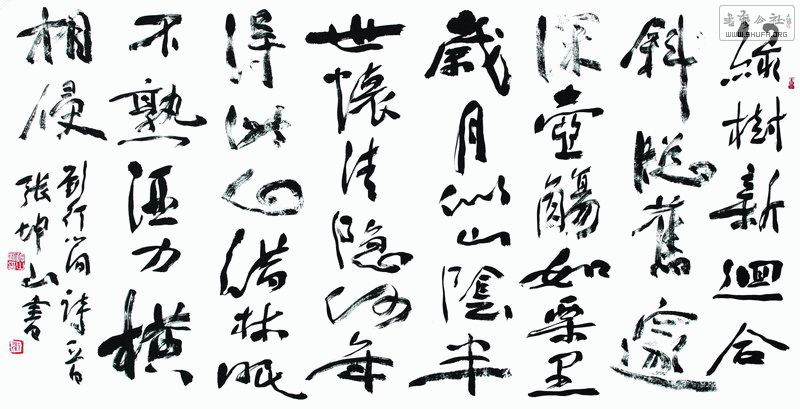 綠樹新迴合
斜舊邃
深壺觴如栗里
歲月似山陰半
世懷清隱何年
得此心借牀眠
不熟酒力橫
相侵
劉行簡詩一首
張坤山書
書法公社
WWW.SHUFA.ORG